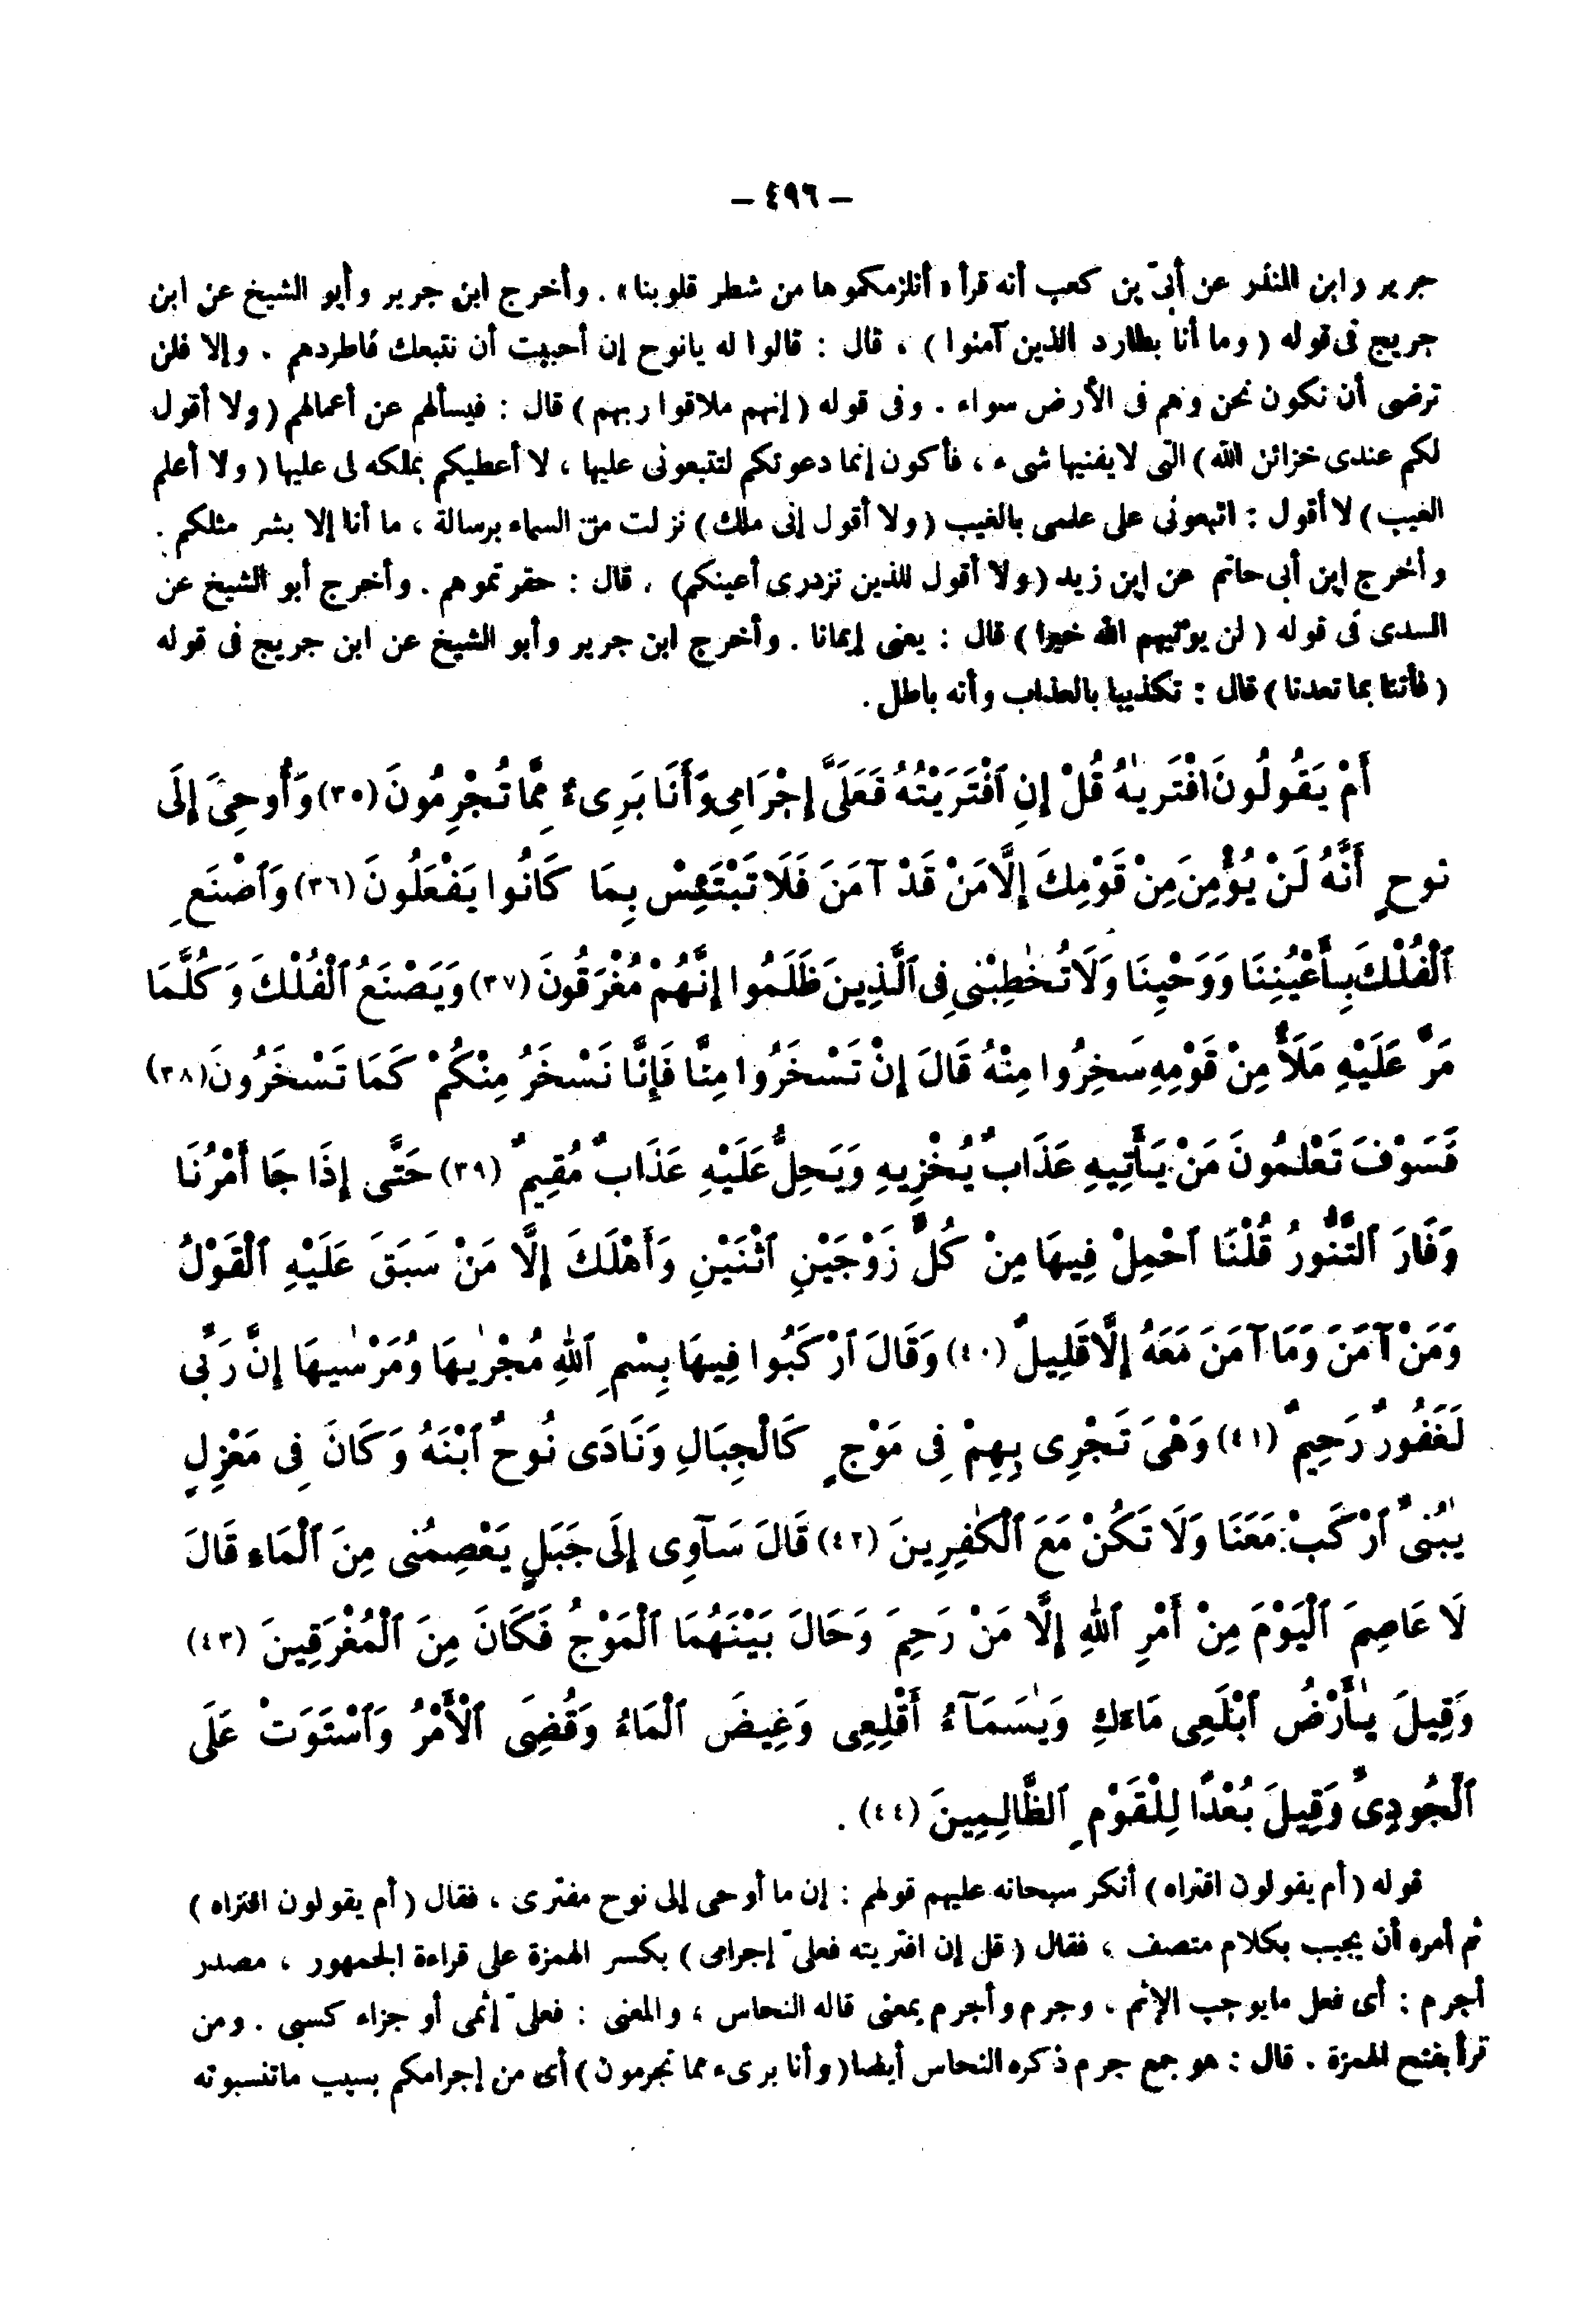 – ٤٩٦ –
جرير وابن المنذر عن أبىّ بن كعب أنه قرأ « أنلزمكموها من شطر قلوبنا » . وأخرج ابن جرير وأبو الشيخ عن ابن
جريج فى قوله ( وما أنا بطارد الذين آمنوا ) ، قال : قالوا له يانوح إن أحببت أن نتبعك فاطردهم . وإلا فلن
ترضى أن نكون نحن وهم فى الأرض سواء . وفى قوله ( إنهم ملاقوا ربهم ) قال : فيسألهم عن أعمالهم ( ولا أقول
لكم عندى خزائن الله ) التى لايفنيها شىء ، فأكون إنما دعوتكم لتتبعونى عليها ، لا أعطيكم بملكه لى عليها ( ولا أعلم
الغيب ) لا أقول : اتبعونى على علمى بالغيب ( ولا أقول إنى ملك ) نزلت من السماء برسالة ، ما أنا إلا بشر مثلكم .
وأخرج ابن أبى حاتم عن ابن زيد ( ولا أقول للذين تزدرى أعينكم ) . قال : حقرتموهم . وأخرج أبو الشيخ عن
السدى فى قوله ( لن يؤتيهم الله خيرا ) قال : يعنى إيمانا . وأخرج ابن جرير وأبو الشيخ عن ابن جريج فى قوله
( فأتنا بما تعدنا ) قال : تكذيبا بالعذاب وأنه باطل .
أَمْ يَقُولُونَ افْتَرَيٰهُ قُلْ إِنِ ٱفْتَرَيْتُهُ فَعَلَىَّ إِجْرَامِى وَأَنَا بَرِىءٌ مِمَّا تُجْرِمُونَ (٣٥) وَأُوحِىَ إِلَى
نُوحٍ أَنَّهُ لَنْ يُؤْمِنَ مِنْ قَوْمِكَ إِلَّا مَنْ قَدْ آمَنَ فَلَا تَبْتَئِسْ بِمَا كَانُوا يَفْعَلُونَ (٣٦) وَٱصْنَعِ
ٱلْفُلْكَ بِأَعْيُنِنَا وَوَحْيِنَا وَلَا تُخٰطِبْنِى فِى ٱلَّذِينَ ظَلَمُوا إِنَّهُمْ مُغْرَقُونَ (٣٧) وَيَصْنَعُ ٱلْفُلْكَ وَكُلَّمَا
مَرَّ عَلَيْهِ مَلَأٌ مِنْ قَوْمِهِ سَخِرُوا مِنْهُ قَالَ إِنْ تَسْخَرُوا مِنَّا فَإِنَّا نَسْخَرُ مِنْكُمْ كَمَا تَسْخَرُونَ (٣٨)
فَسَوْفَ تَعْلَمُونَ مَنْ يَأْتِيهِ عَذَابٌ يُخْزِيهِ وَيَحِلُّ عَلَيْهِ عَذَابٌ مُقِيمٌ (٣٩) حَتَّى إِذَا جَا أَمْرُنَا
وَفَارَ ٱلتَّنُّورُ قُلْنَا ٱحْمِلْ فِيهَا مِنْ كُلٍّ زَوْجَيْنِ ٱثْنَيْنِ وَأَهْلَكَ إِلَّا مَنْ سَبَقَ عَلَيْهِ ٱلْقَوْلُ
وَمَنْ آمَنَ وَمَا آمَنَ مَعَهُ إِلَّا قَلِيلٌ (٤٠) وَقَالَ ٱرْكَبُوا فِيهَا بِسْمِ ٱللهِ مُجْرٰيهَا وَمُرْسٰيهَا إِنَّ رَبِّى
لَغَفُورٌ رَحِيمٌ (٤١) وَهْىَ تَجْرِى بِهِمْ فِى مَوْجٍ كَالْجِبَالِ وَنَادَى نُوحٌ ٱبْنَهُ وَكَانَ فِى مَعْزِلٍ
يٰبُنَىَّ ٱرْكَبْ مَعَنَا وَلَا تَكُنْ مَعَ ٱلْكٰفِرِينَ (٤٢) قَالَ سَآوِى إِلَى جَبَلٍ يَعْصِمُنِى مِنَ ٱلْمَاءِ قَالَ
لَا عَاصِمَ ٱلْيَوْمَ مِنْ أَمْرِ ٱللهِ إِلَّا مَنْ رَحِمَ وَحَالَ بَيْنَهُمَا ٱلْمَوْجُ فَكَانَ مِنَ ٱلْمُغْرَقِينَ (٤٣)
وَقِيلَ يٰأَرْضُ ٱبْلَعِى مَاءَكِ وَيٰسَمَآءُ أَقْلِعِى وَغِيضَ ٱلْمَاءُ وَقُضِىَ ٱلْأَمْرُ وَٱسْتَوَتْ عَلَى
ٱلْجُودِىِّ وَقِيلَ بُعْدًا لِلْقَوْمِ ٱلظَّالِمِينَ (٤٤) .
قوله ( أم يقولون افتراه ) أنكر سبحانه عليهم قولهم : إن ما أوحى إلى نوح مفترى ، فقال ( أم يقولون افتراه )
ثم أمره أن يجيب بكلام متصف ، فقال ( قل إن افتريته فعلىّ إجرامى ) بكسر الهمزة على قراءة الجمهور ، مصدر
أجرم : أى فعل مايوجب الإثم ، وجرم وأجرم بمعنى قاله النحاس ، والمعنى : فعلىّ إثمى أو جزاء كسبى . ومن
قرأ بفتح الهمزة . قال : هو جمع جرم ذكره النحاس أيضا ( وأنا برىء مما تجرمون ) أى من إجرامكم بسبب ماتنسبونه